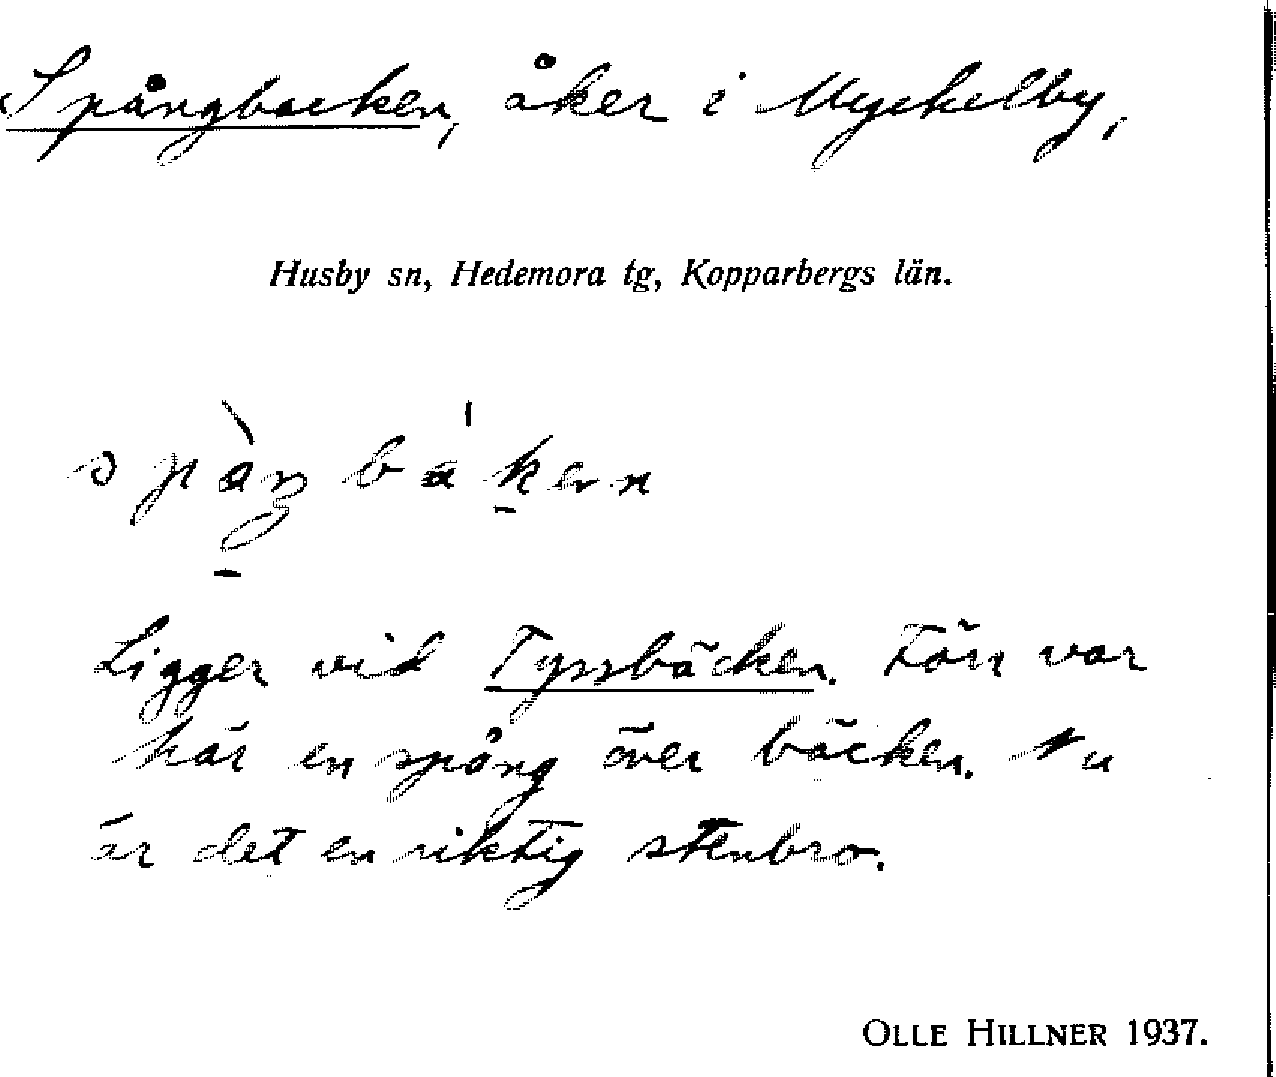 Spångbacken, åker i Myckelby,
Husby sn, Hedemora tg, Kopparbergs län.
Ligger vid Tyssbäcken. Förr var
här en spång över bäcken. Nu
är det en riktig stenbro.
OLLE HILLNER 1937.